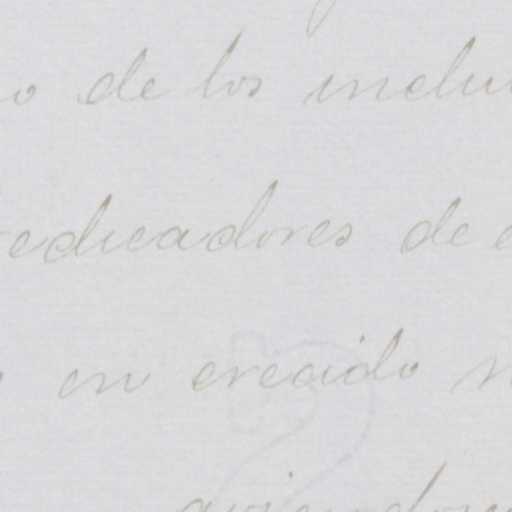 o de los inclu
edicadores de
en crecido n